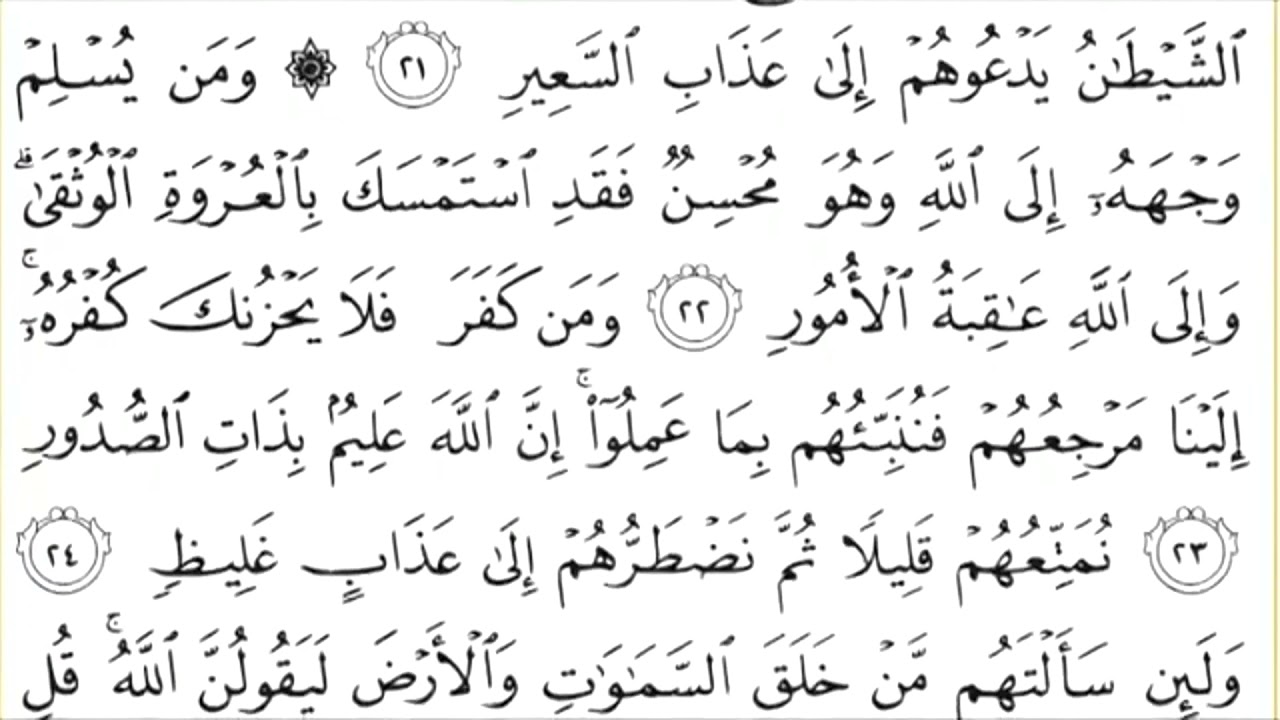 ٱلشَّيْطَـٰنُ يَدْعُوهُمْ إِلَىٰ عَذَابِ ٱلسَّعِيرِ ٢١ ۞ وَمَن يُسْلِمْ
وَجْهَهُۥٓ إِلَى ٱللَّهِ وَهُوَ مُحْسِنٌ فَقَدِ ٱسْتَمْسَكَ بِٱلْعُرْوَةِ ٱلْوُثْقَىٰ ۗ
وَإِلَى ٱللَّهِ عَـٰقِبَةُ ٱلْأُمُورِ ٢٢ وَمَن كَفَرَ فَلَا يَحْزُنكَ كُفْرُهُۥٓ ۚ
إِلَيْنَا مَرْجِعُهُمْ فَنُنَبِّئُهُم بِمَا عَمِلُوٓا۟ ۚ إِنَّ ٱللَّهَ عَلِيمٌۢ بِذَاتِ ٱلصُّدُورِ
٢٣ نُمَتِّعُهُمْ قَلِيلًا ثُمَّ نَضْطَرُّهُمْ إِلَىٰ عَذَابٍ غَلِيظٍ ٢٤
وَلَئِن سَأَلْتَهُم مَّنْ خَلَقَ ٱلسَّمَـٰوَٰتِ وَٱلْأَرْضَ لَيَقُولُنَّ ٱللَّهُ ۚ قُلِ